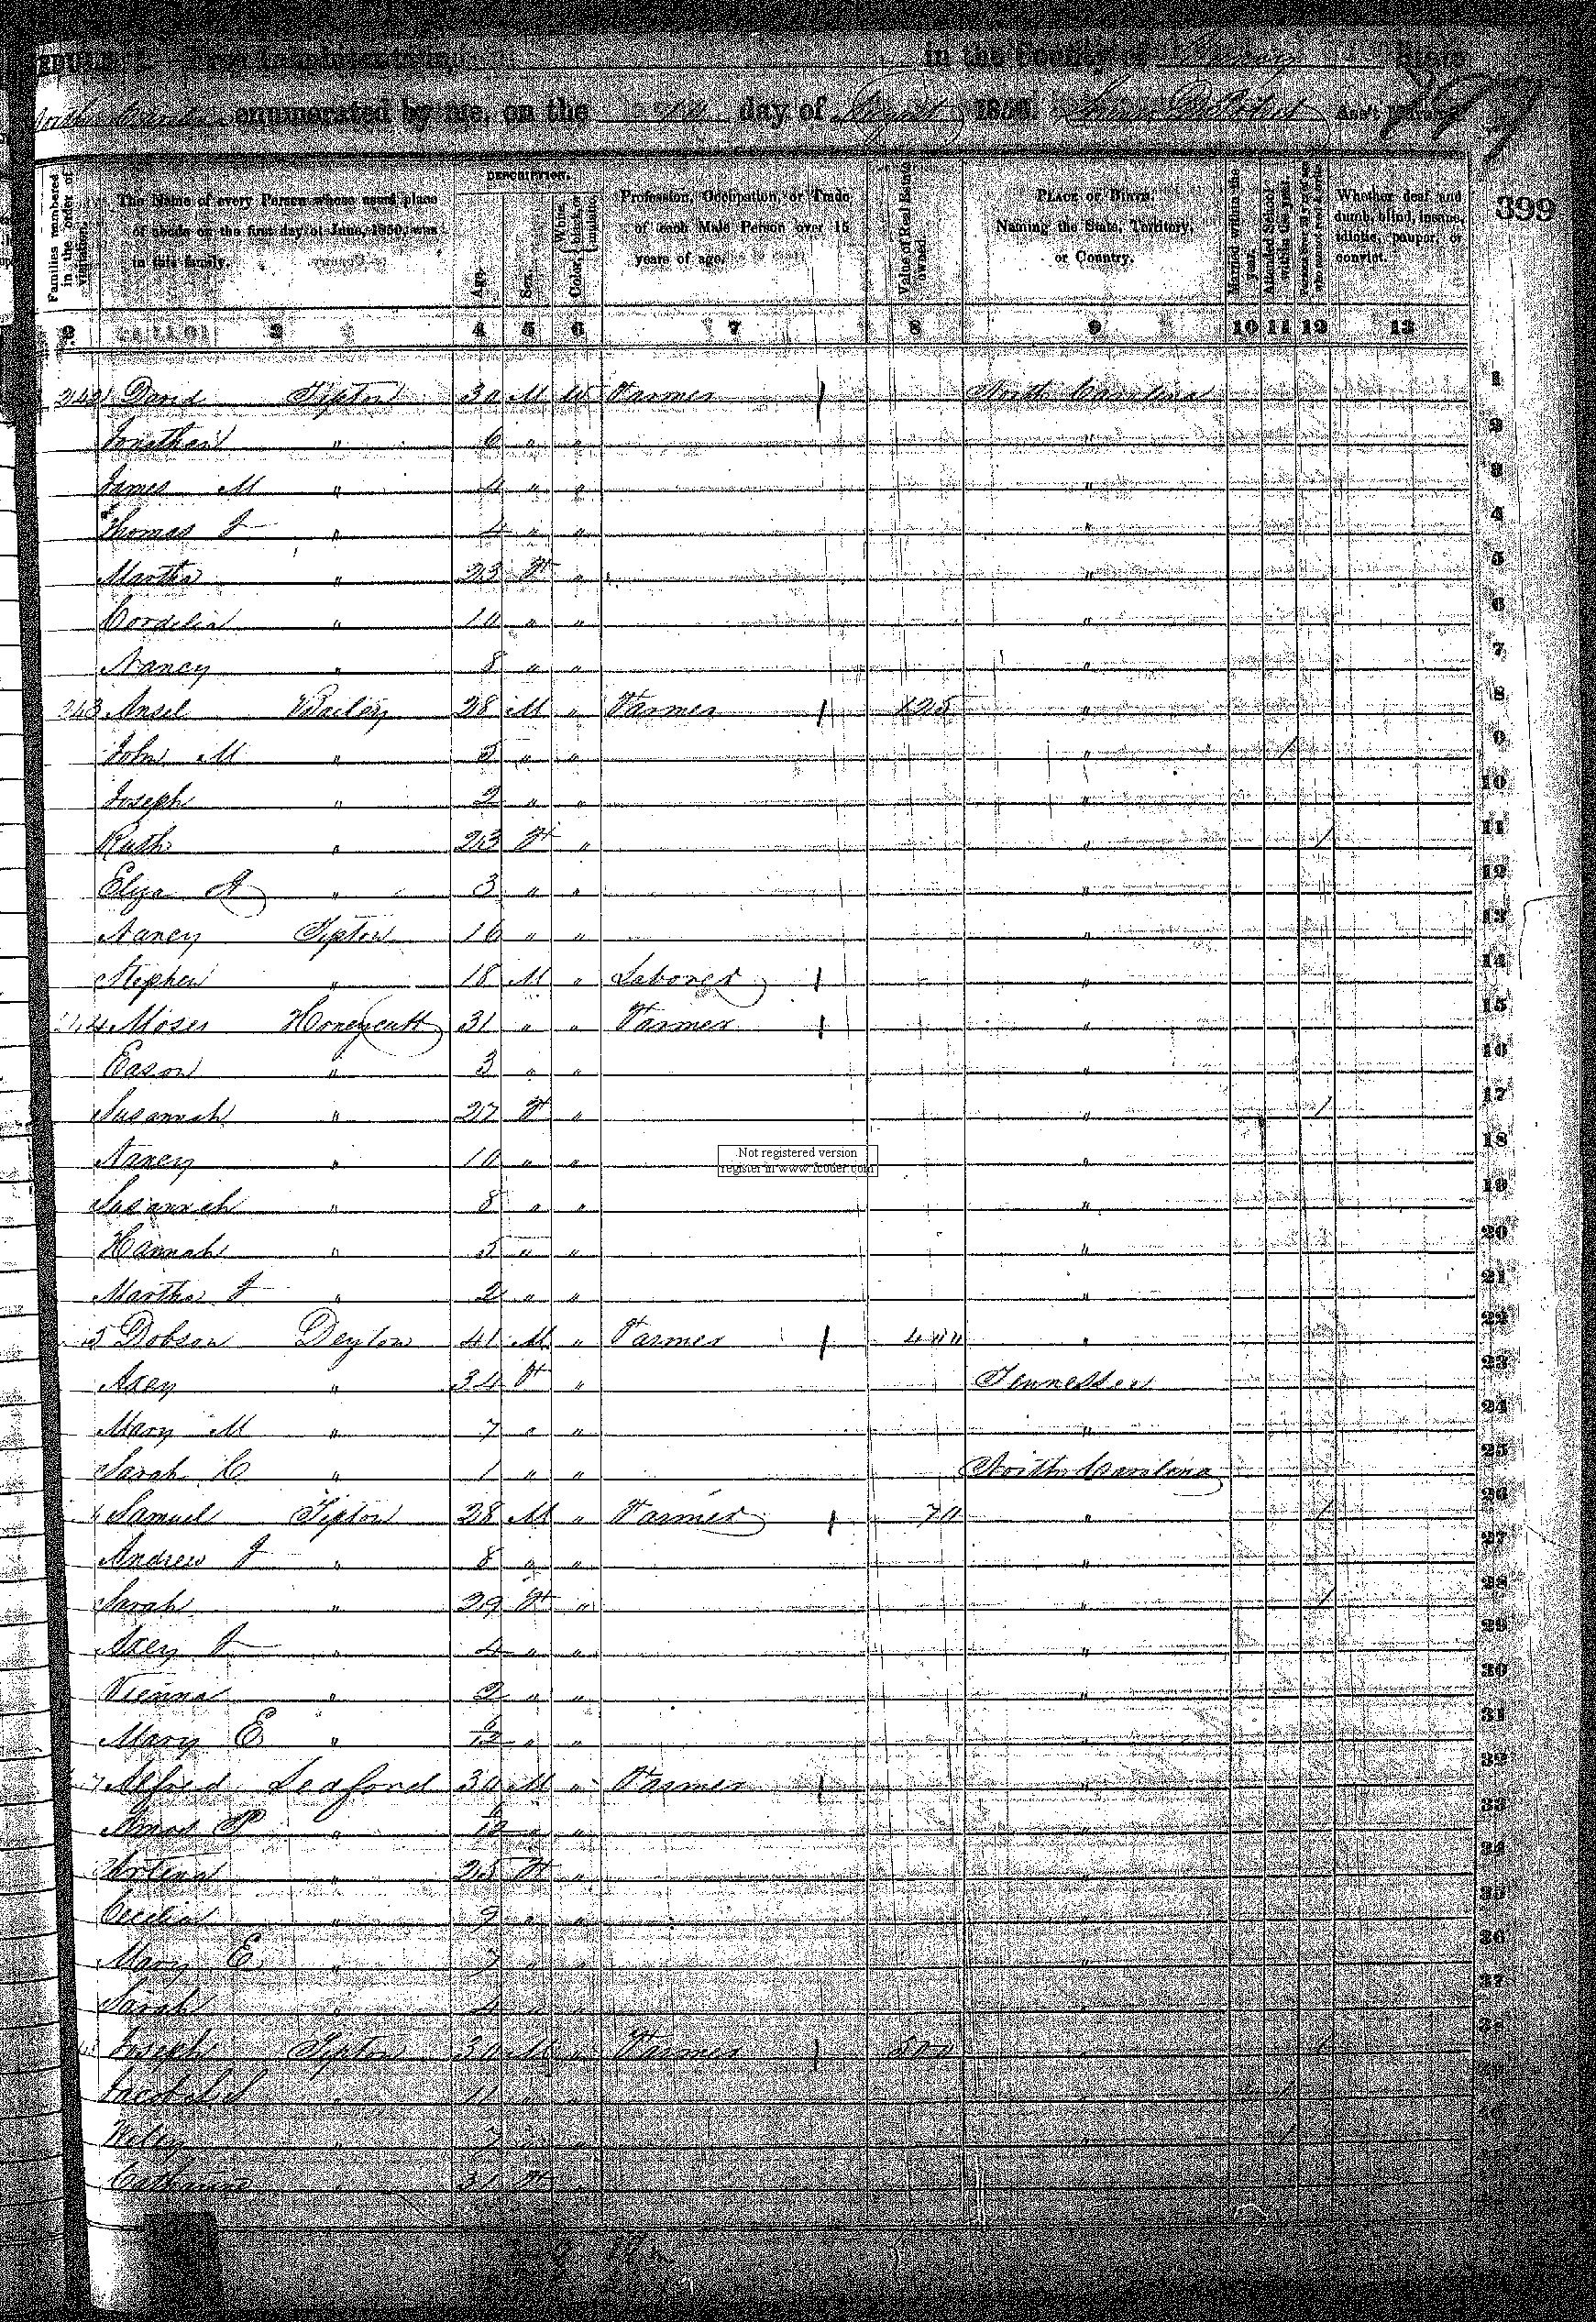 in the County of Yancey State
North Carolina enumerated by me, on the day of August 1850. Ass't Marshal
DESCRIPTION.
Families numbered in the order of visitation.
The Name of every Person whose usual place of abode on the first day of June, 1850, was in this family.
Age.
Sex.
Color, White, black, or mulatto.
Profession, Occupation, or Trade of each Male Person over 15 years of age.
Value of Real Estate owned.
PLACE OF BIRTH. Naming the State, Territory, or Country.
Married within the year.
Attended School within the year.
Persons over 20 y'rs of age who cannot read & write.
Whether deaf and dumb, blind, insane, idiotic, pauper, or convict.
399
2 3 4 5 6 7 8 9 10 11 12 13
242 David Tipton 30 M W Farmer North Carolina 1
Jonathan " 6 " " " 2
James M " 4 " " " 3
Thomas J " 4 " " " 4
Martha " 23 F " " 5
Cordelia " 10 " " " 6
Nancy " 8 " " " 7
243 Ansel Bailey 28 M " Farmer 125 " 8
John M " 5 " " " / 9
Joseph " 2 " " " 10
Ruth " 23 F " " / 11
Eliza A " 3 " " " 12
Nancy Tipton 16 " " " 13
Stephen " 18 M " Laborer " 14
244 Moses Honeycutt 31 " " Farmer " 15
Eason " 3 " " " 16
Susannah " 27 F " " / 17
Nancy " 10 " " " 18
Not registered version
register in www.fcoder.com
Susannah " 8 " " " 19
Hannah " 5 " " " 20
Martha J " 2 " " " 21
5 Dobson Deyton 41 M " Farmer 400 " 22
Axey " 34 F " Tennessee 23
Mary M " 7 " " " 24
Sarah C " 1 " " North Carolina 25
Samuel Tipton 28 M " Farmer 70 " / 26
Andrew J " 8 " " " 27
Sarah " 29 F " " / 28
Axey J " 4 " " " 29
Vienna " 2 " " " 30
Mary E " 6/12 " " " 31
7 Alfred Ledford 30 M " Farmer " 32
Amos P " 6/12 " " " 33
" 25 F " " 34
Cecilia " 9 " " " 35
Mary E " 7 " " " 36
Sarah " 4 " " " 37
Joseph Tipton 30 M " Farmer 500 " /
Jacob " 11 " /
Wiley " 7 " " "
Catharine " 31 F